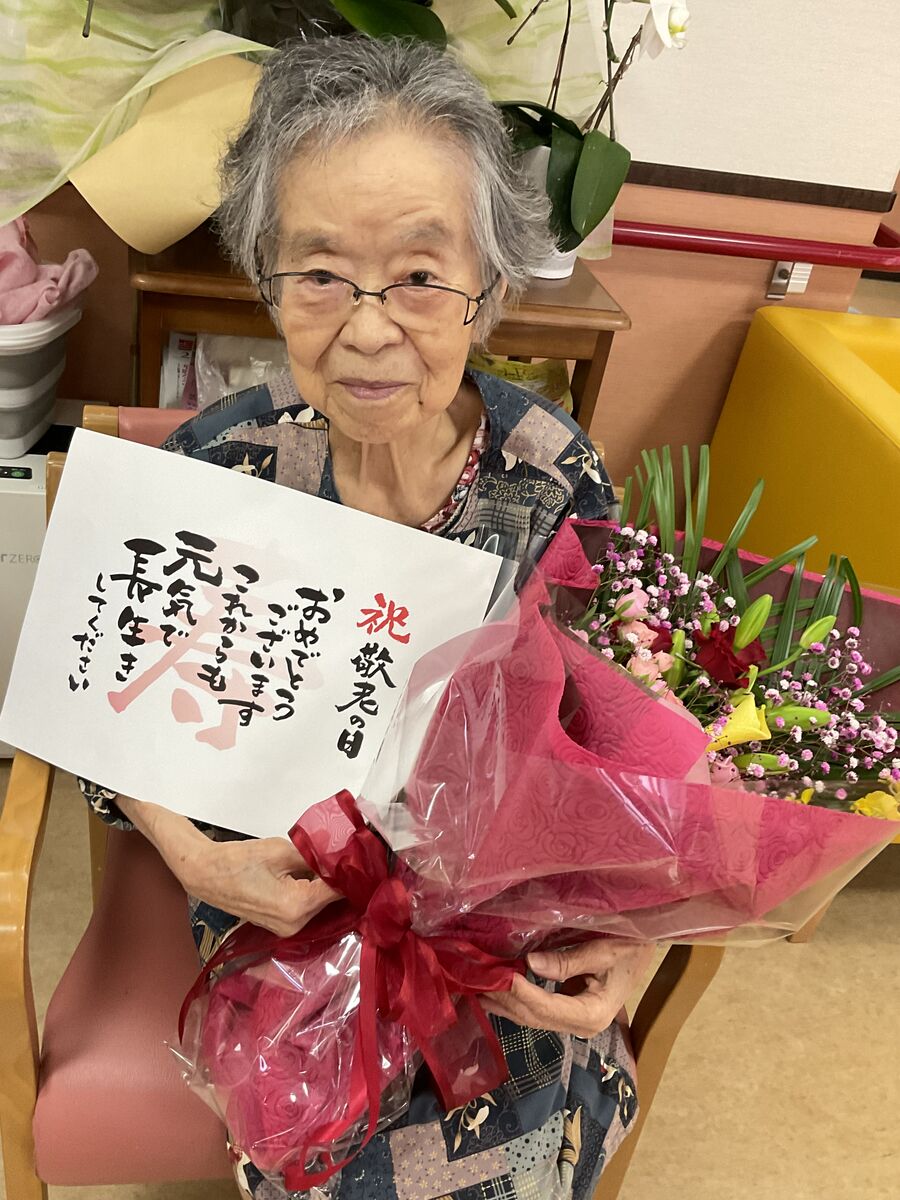 祝 敬老の日
おめでとう
ございます
これからも
元気で
長生き
してください
寿
ZERO